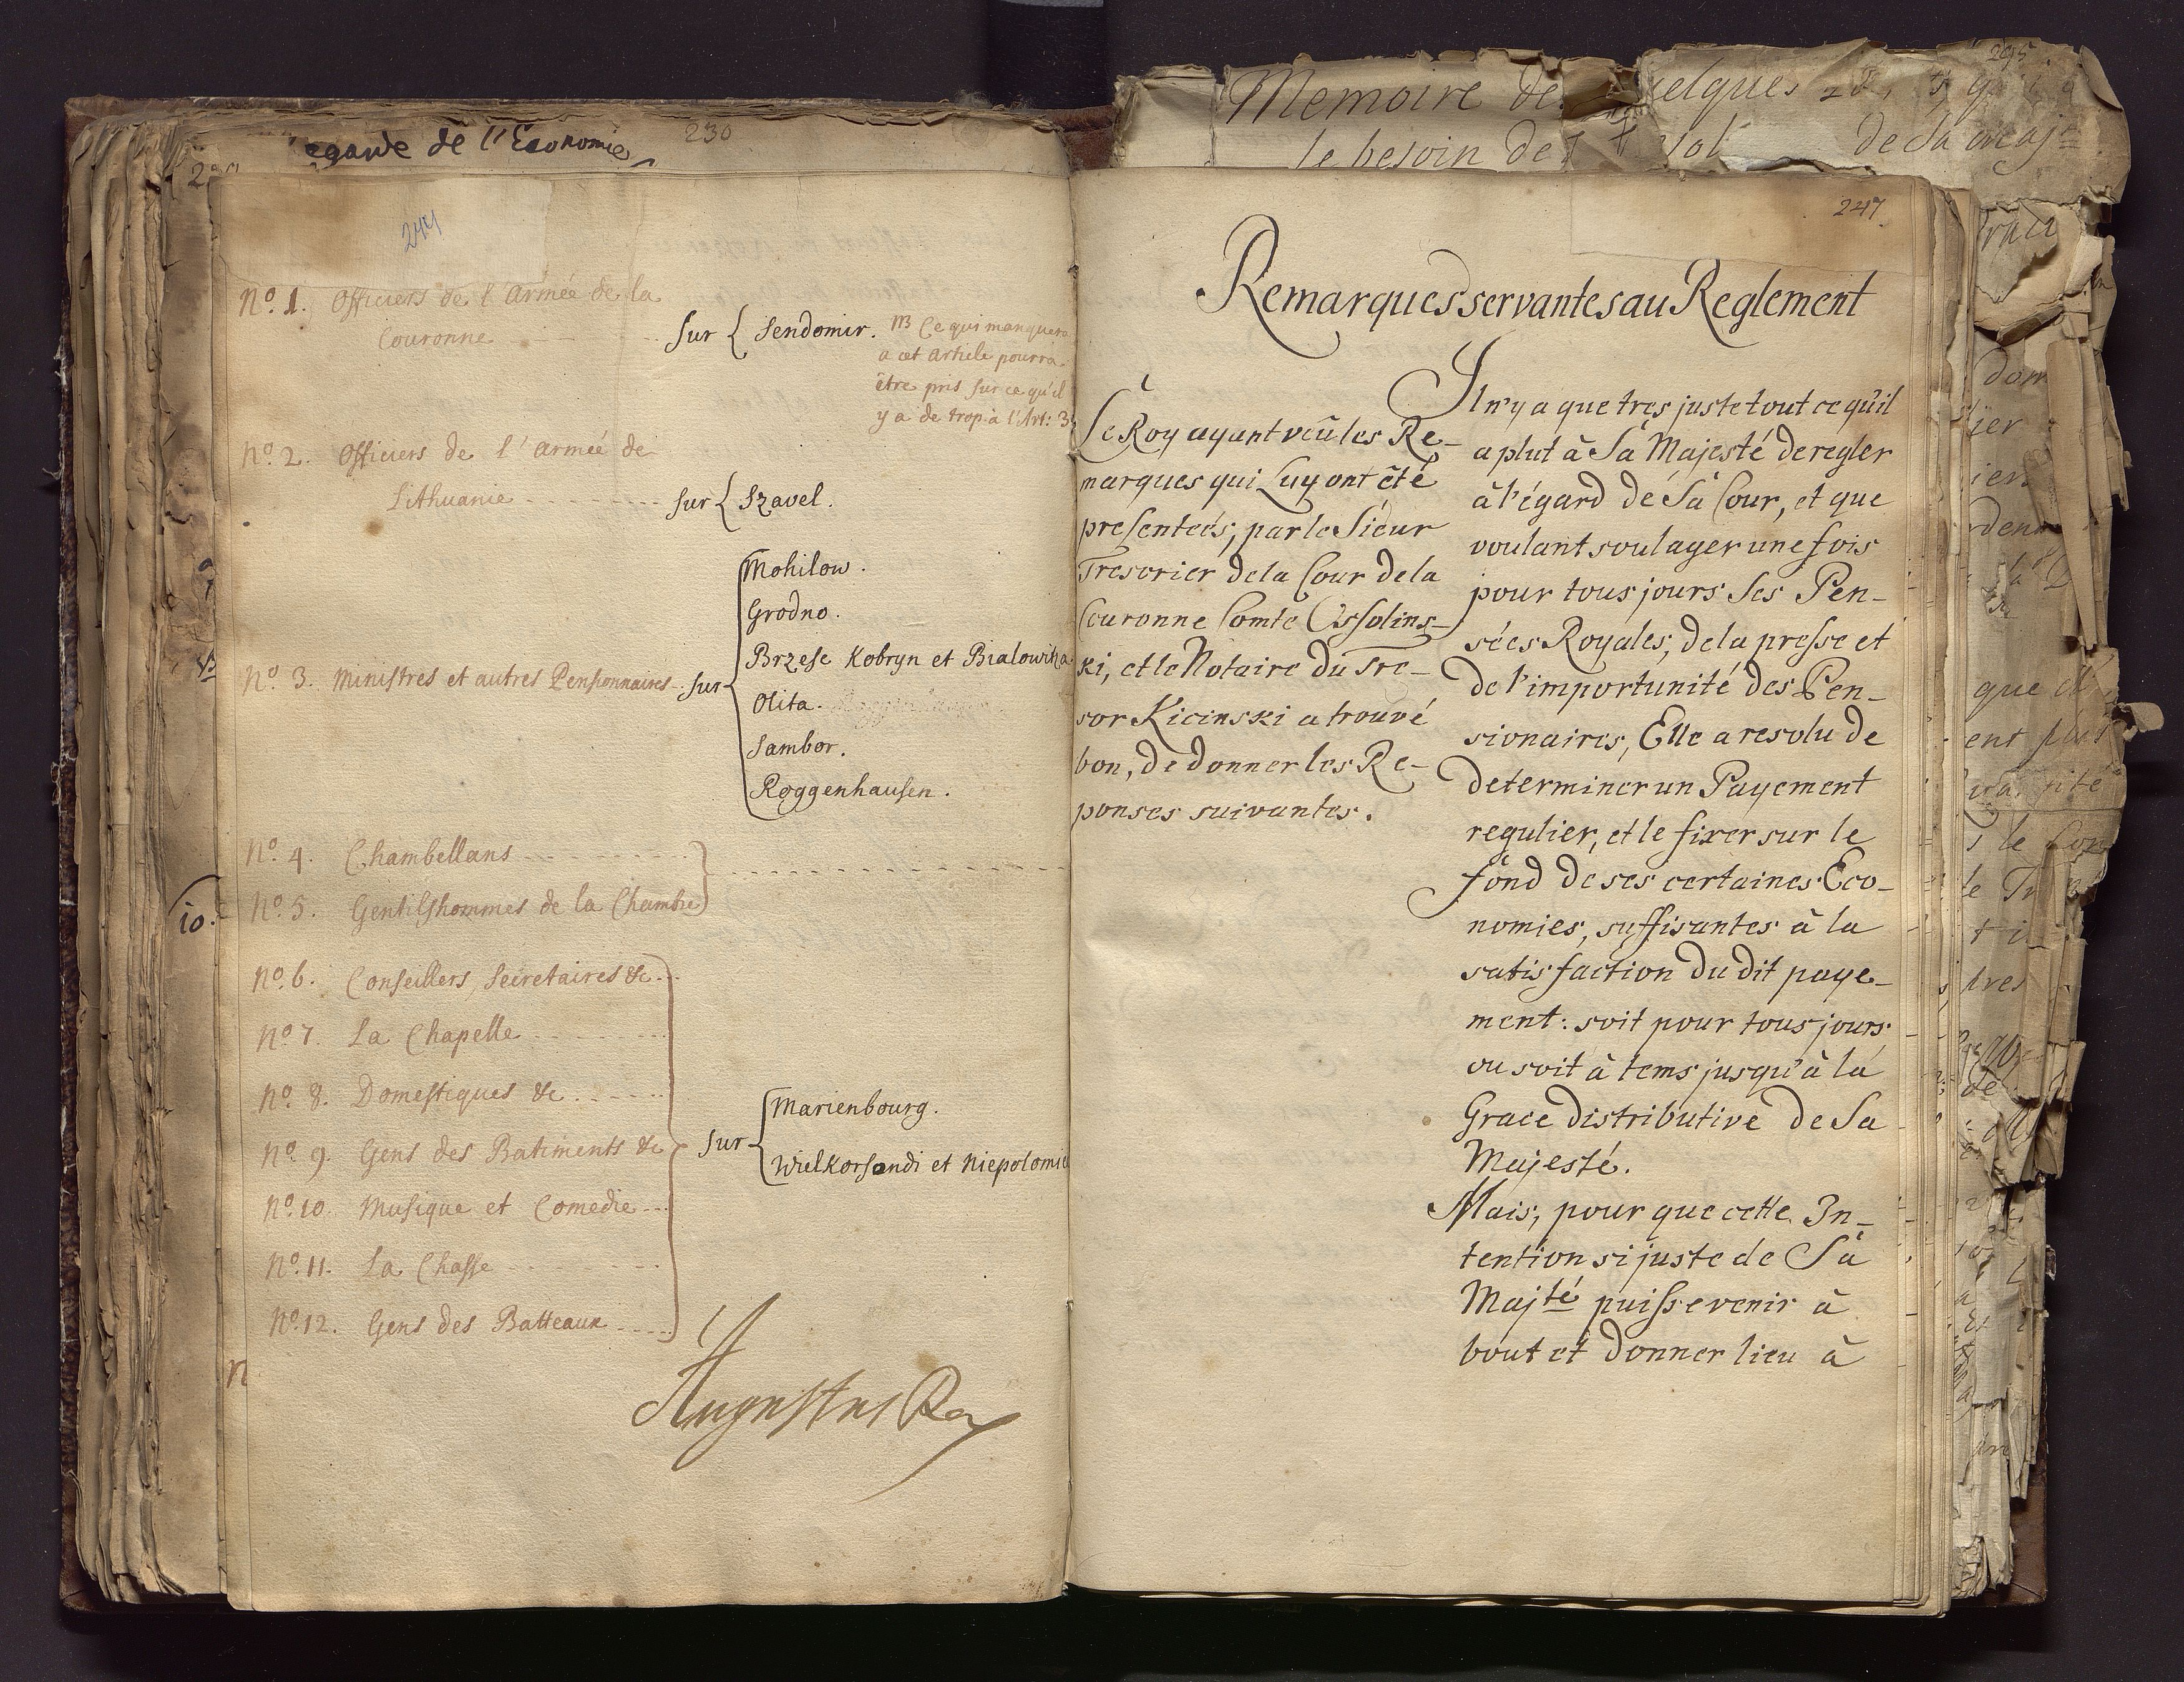 egarde de l'Economie
230
244
No. 1. Officiers de l'Armée de la
Couronne
sur { Sendomir.
NB Ce qui manquera
a cet Article pourra
être pris sur ce qu'il
y a de trop à l'Art: 3
No. 2. Officiers de l'Armée de
Lithuanie
sur { Szavel.
No. 3. Ministres et autres Pensionnaires sur
Mohilow.
Grodno.
Brzesc Kobryn et Bialowitza
Olita.
Sambor.
Roggenhausen.
No. 4. Chambellans
No. 5. Gentilshommes de la Chambre
10.
No. 6. Conseillers, Secretaires &c
No. 7. La Chapelle
No. 8. Domestiques &c
No. 9. Gens des Batiments &c
No. 10. Musique et Comedie
No. 11. La Chasse
No. 12. Gens des Batteaux
sur
Marienbourg.
Wielkorsandi et Niepolomie
Augustus Rex
Memoire de quelques
le besoin de
de Sa Majte
295
247
Remarques servantes au Reglement
Le Roy ayant veû les Re-
marques qui Luy ont êté
presenteés, par le Sieur
Tresorier de la Cour de la
Couronne Comte Ossolins-
ki, et le Notaire du Tre-
sor Kicinski a trouvé
bon, de donner les Re-
ponses suivantes.
Il n'y a que tres juste tout ce qu'il
a plut â Sa Majesté de regler
â l'égard de Sa Cour, et que
voulant soulager une fois
pour tous jours Ses Pen-
sées Royales, de la presse et
de l'importunité des Pen-
sionaires, Elle a resolu de
determiner un Payement
regulier, et le fixer sur le
fond de ses certaines Eco-
nomies, suffisantes â la
satisfaction du dit paye-
ment: soit pour tous jours,
ou soit â tems jusqu'â la
Grace distributive de Sa
Majesté.
Mais, pour que cette In-
tention si juste de Sa
Majté puisse venir â
bout et donner lieu â